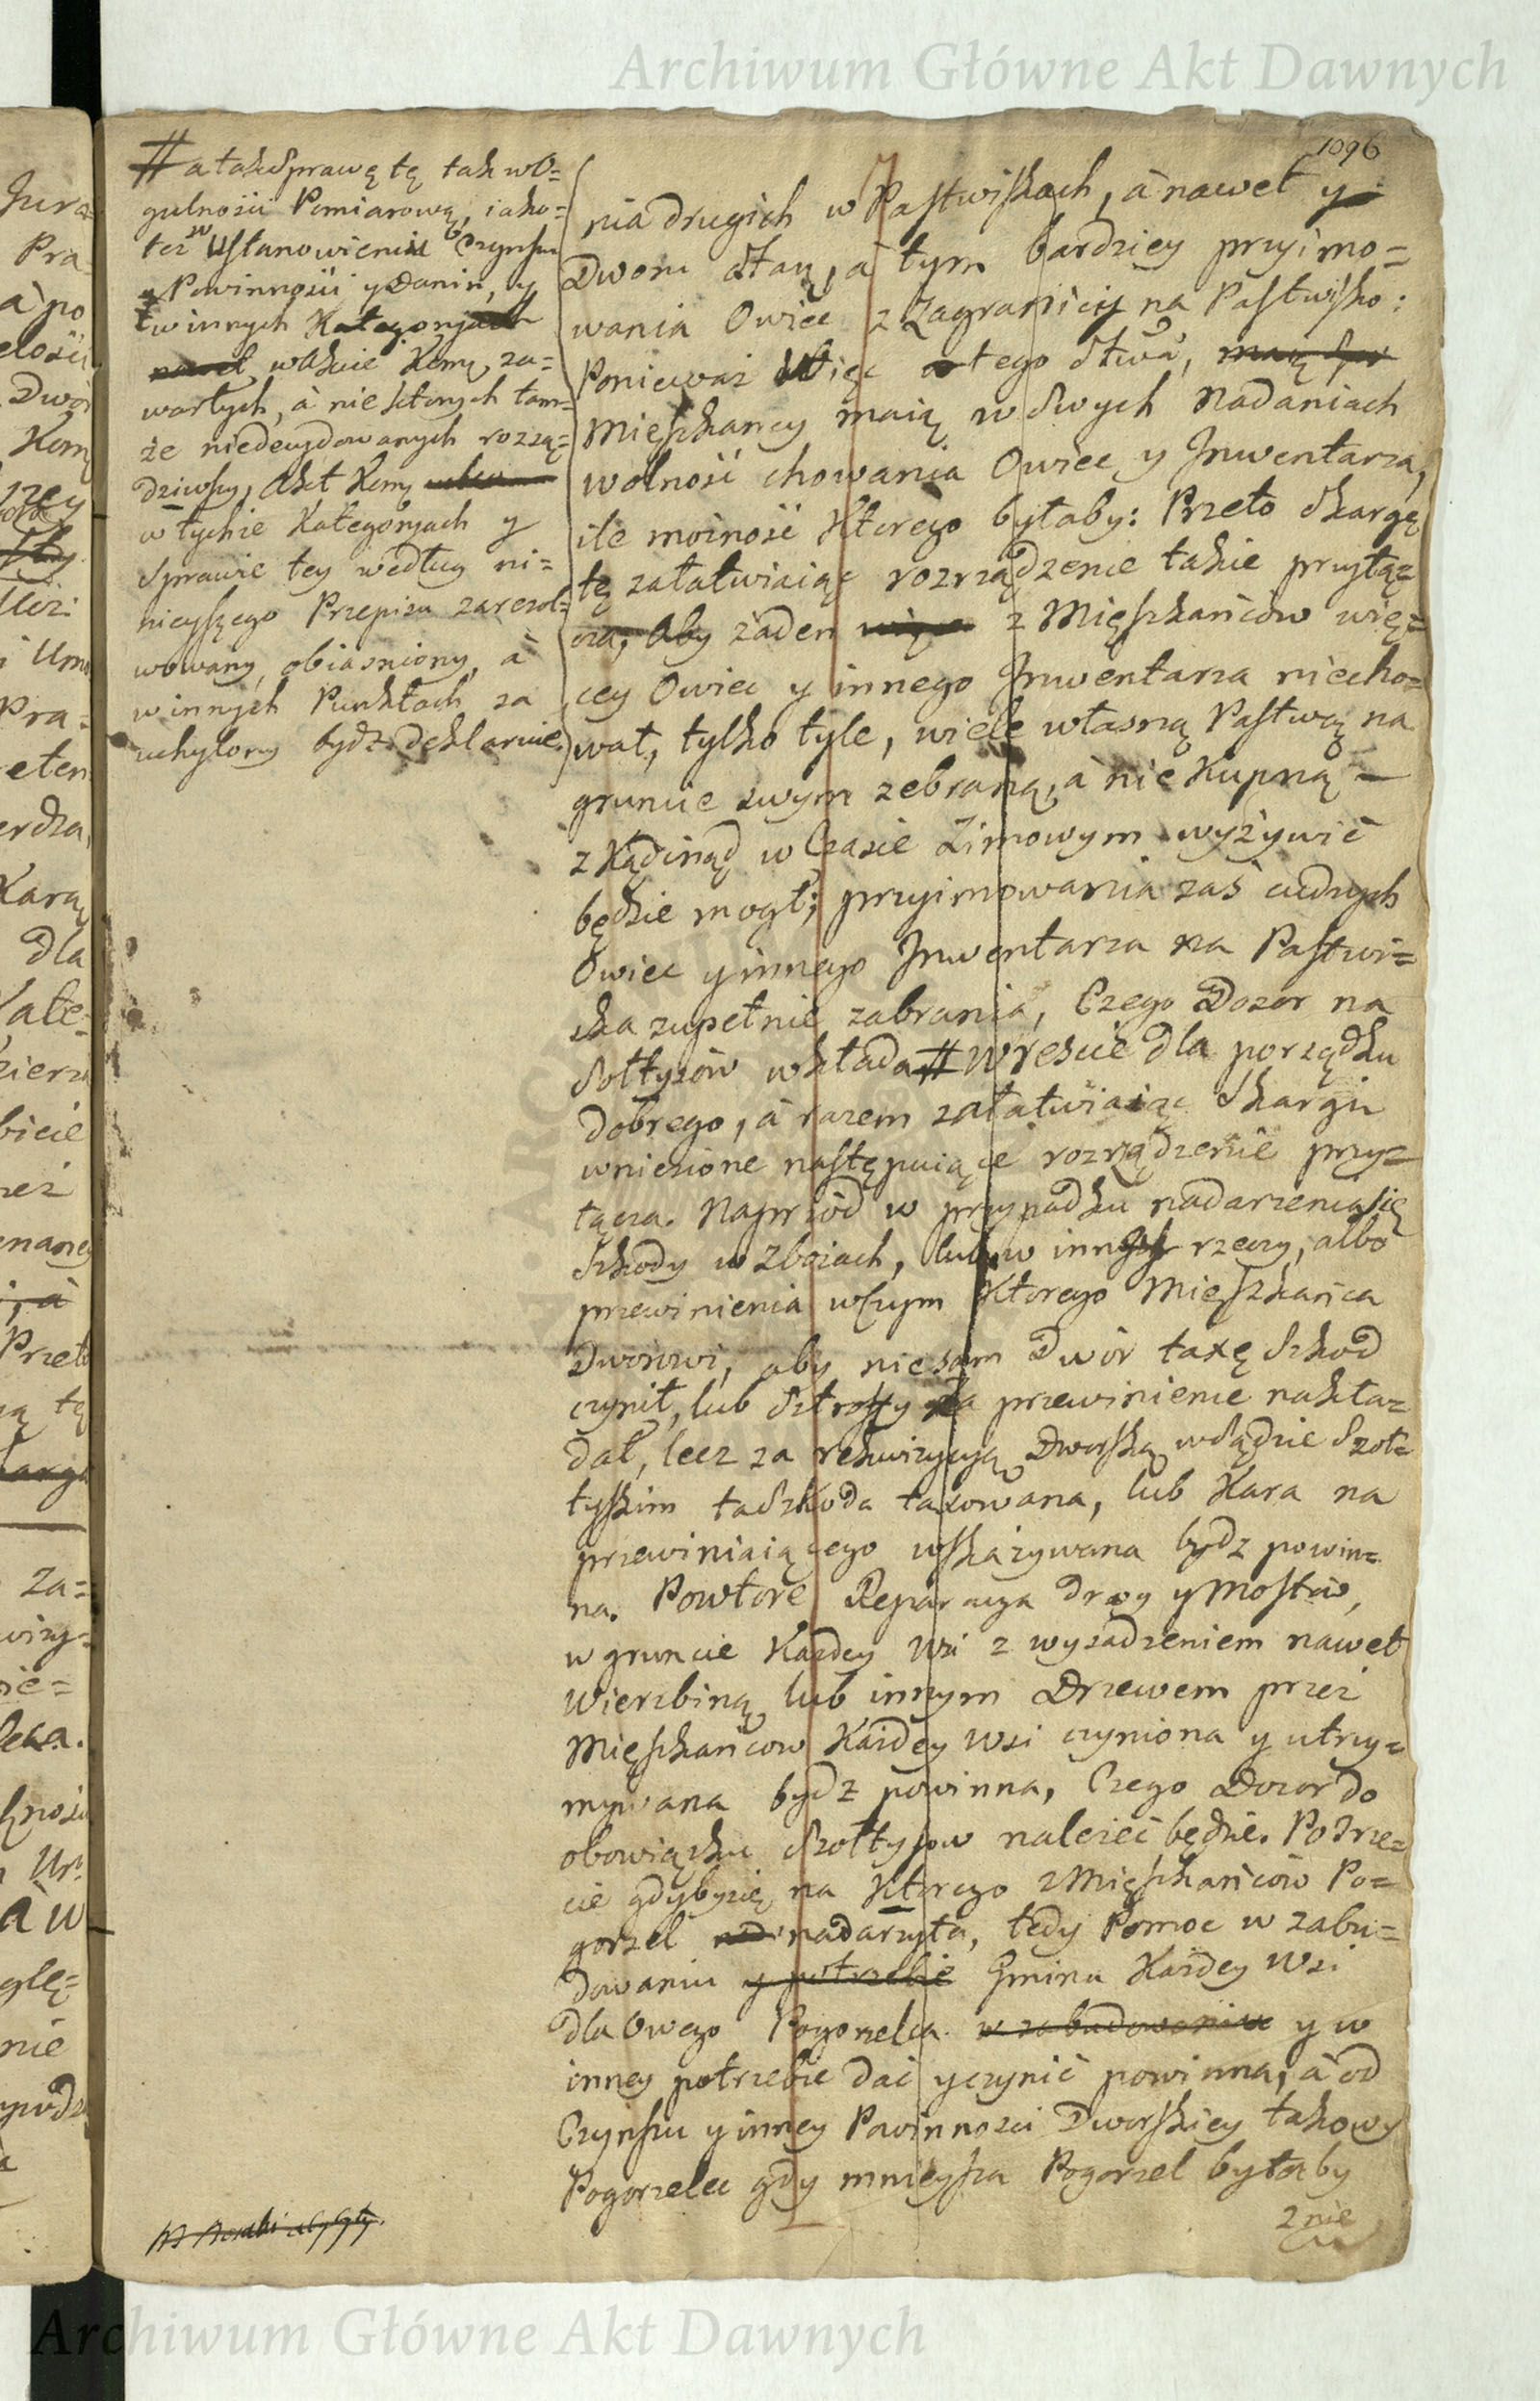 Archiwum Główne Akt Dawnych
1096
# a tak Sprawę tę tak w O=
gulności Pomiarową, iako=
też w Ustanowieniu Czynszu
Powinności y Danin, y
w innych Kategoryach
nawet w Akcie Komy za=
wartych, à nie których tam=
że niedecydowanych rozsą=
dziwszy, Akt Komy
w tychże Kategoryach y
Sprawie tey według ni=
nieyszego Przepisu zarezol=
wowany, obiasniony, à
w innych Punktach za
uchylony bydz deklaruie.
nia drugich w Pastwiskach, à nawet y
Dworu stary, à tym bardziey przyimo=
wania Owiec z Zagranicy na Pastwisko:
Ponieważ Więc tego Stwa,
Mięszkancy maią w Swych Nadaniach
wolność chowania Owiec y Jnwentarza,
ile możność Ktorego byłaby: Przeto Skargę
tę załatwiaiąc rozrządzenie takie przyłą=
cza, Aby żaden więc z Mięszkańców wię=
cey Owiec y innego Jnwentarza niecho=
wał, tylko tyle, wiele własną Pastwą na
gruncie swym zebraną, à nie Kupną —
zkądinąd w Czasie Zimowym wyżywić
będzie mogł; przyimowania zaś cudzych
Owiec y innego Jnwentarza na Pastwi=
ska zupełnie zabrania, Czego Dozor na
Sołtysów wkłada # Wreście dla porządku
dobrego, à razem załatwiaiąc Skargi
wniesione następuiące rozrządzenie przy=
łącza. Naprzód w przypadku nadarzenia się
Szkody w Zbożach, lub w inney rzeczy, albo
przewinienia w czym Ktorego Mięszkańca
Dworowi, aby nie sam Dwór taxę Szkod
czynił, lub Sztrofy za przewinienie nakła=
dał, lecz za rekwizycyą Dworską w Sądzie Szoł=
tyskim ta Szkoda taxowana, lub Kara na
przewiniaiącego wskazywana bydz powin=
na. Powtore Reparacya drog y Mostów,
w gruncie Kazdey Wsi z wysadzeniem nawet
Wierzbiną, lub innym Drzewem przez
Mięszkańcow Kazdey Wsi czyniona y utrzy=
mywana bydz powinna, Czego Dozor do
obowiązku Szołtysow należeć będzie. Potrze=
cie gdyby się na Ktorego z Mięszkańców Po=
gorzel nadarzyła, tedy Pomoc w zabu=
dowaniu y potrzebie Gmina Kazdey Wsi
dla Owego Pogorzelca w zabudowaniu y w
inney potrzebie dać y czynić powinna, à od
Czynszu y inney Powinności Dworskiey takowy
Pogorzelec gdy mnieysza Pogorzel byłaby
z nie
Archiwum Główne Akt Dawnych